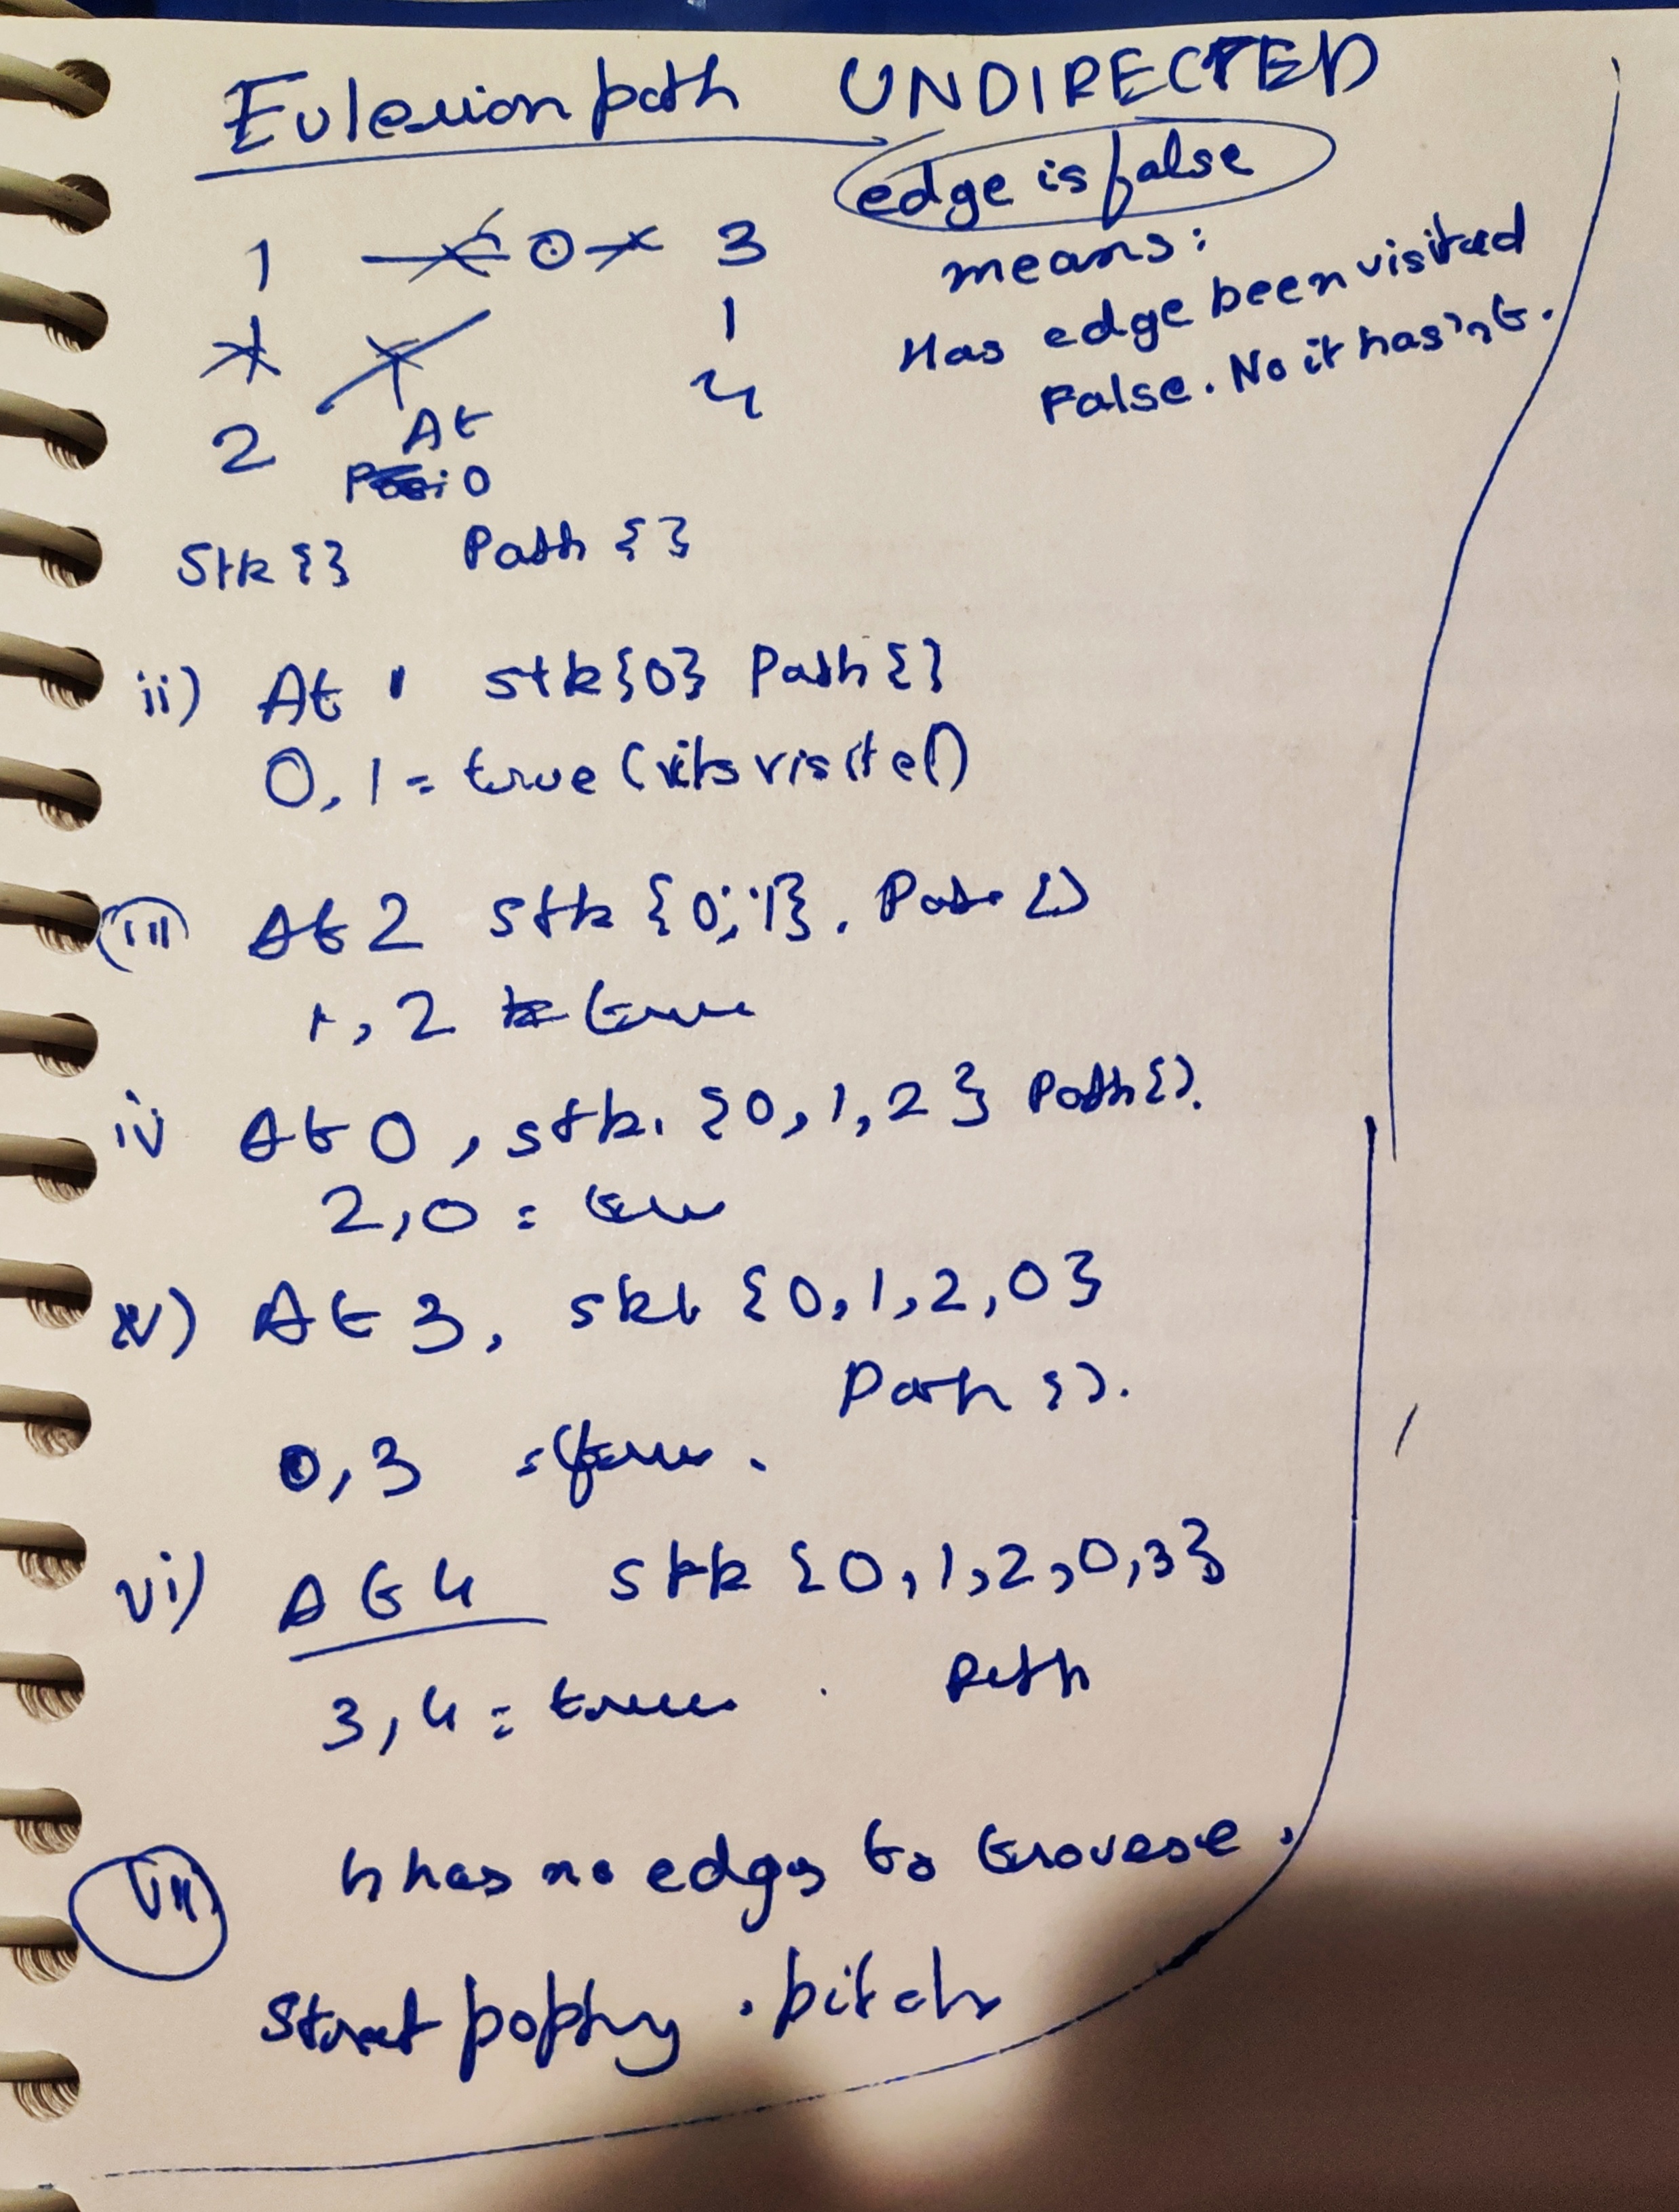 Eulerion path UNDIRECTED
edge is false
means:
Has edge been visited
False. No it hasn't.
1 0 3
1
2 4
At
0
Stk {} Path {}
ii) At 1 stk {0} Path {}
0, 1 = true (its visited)
iii At 2 stk {0, 1}. Path {}
1, 2 true
iv At 0, stk. {0, 1, 2} Path {}.
2, 0 = true
v) At 3, skt {0, 1, 2, 0}
Path {}.
0, 3 = true.
vi) At 4 stk {0, 1, 2, 0, 3}
3, 4 = true. Path
vii 4 has no edges to traverse.
Start popping. bitch